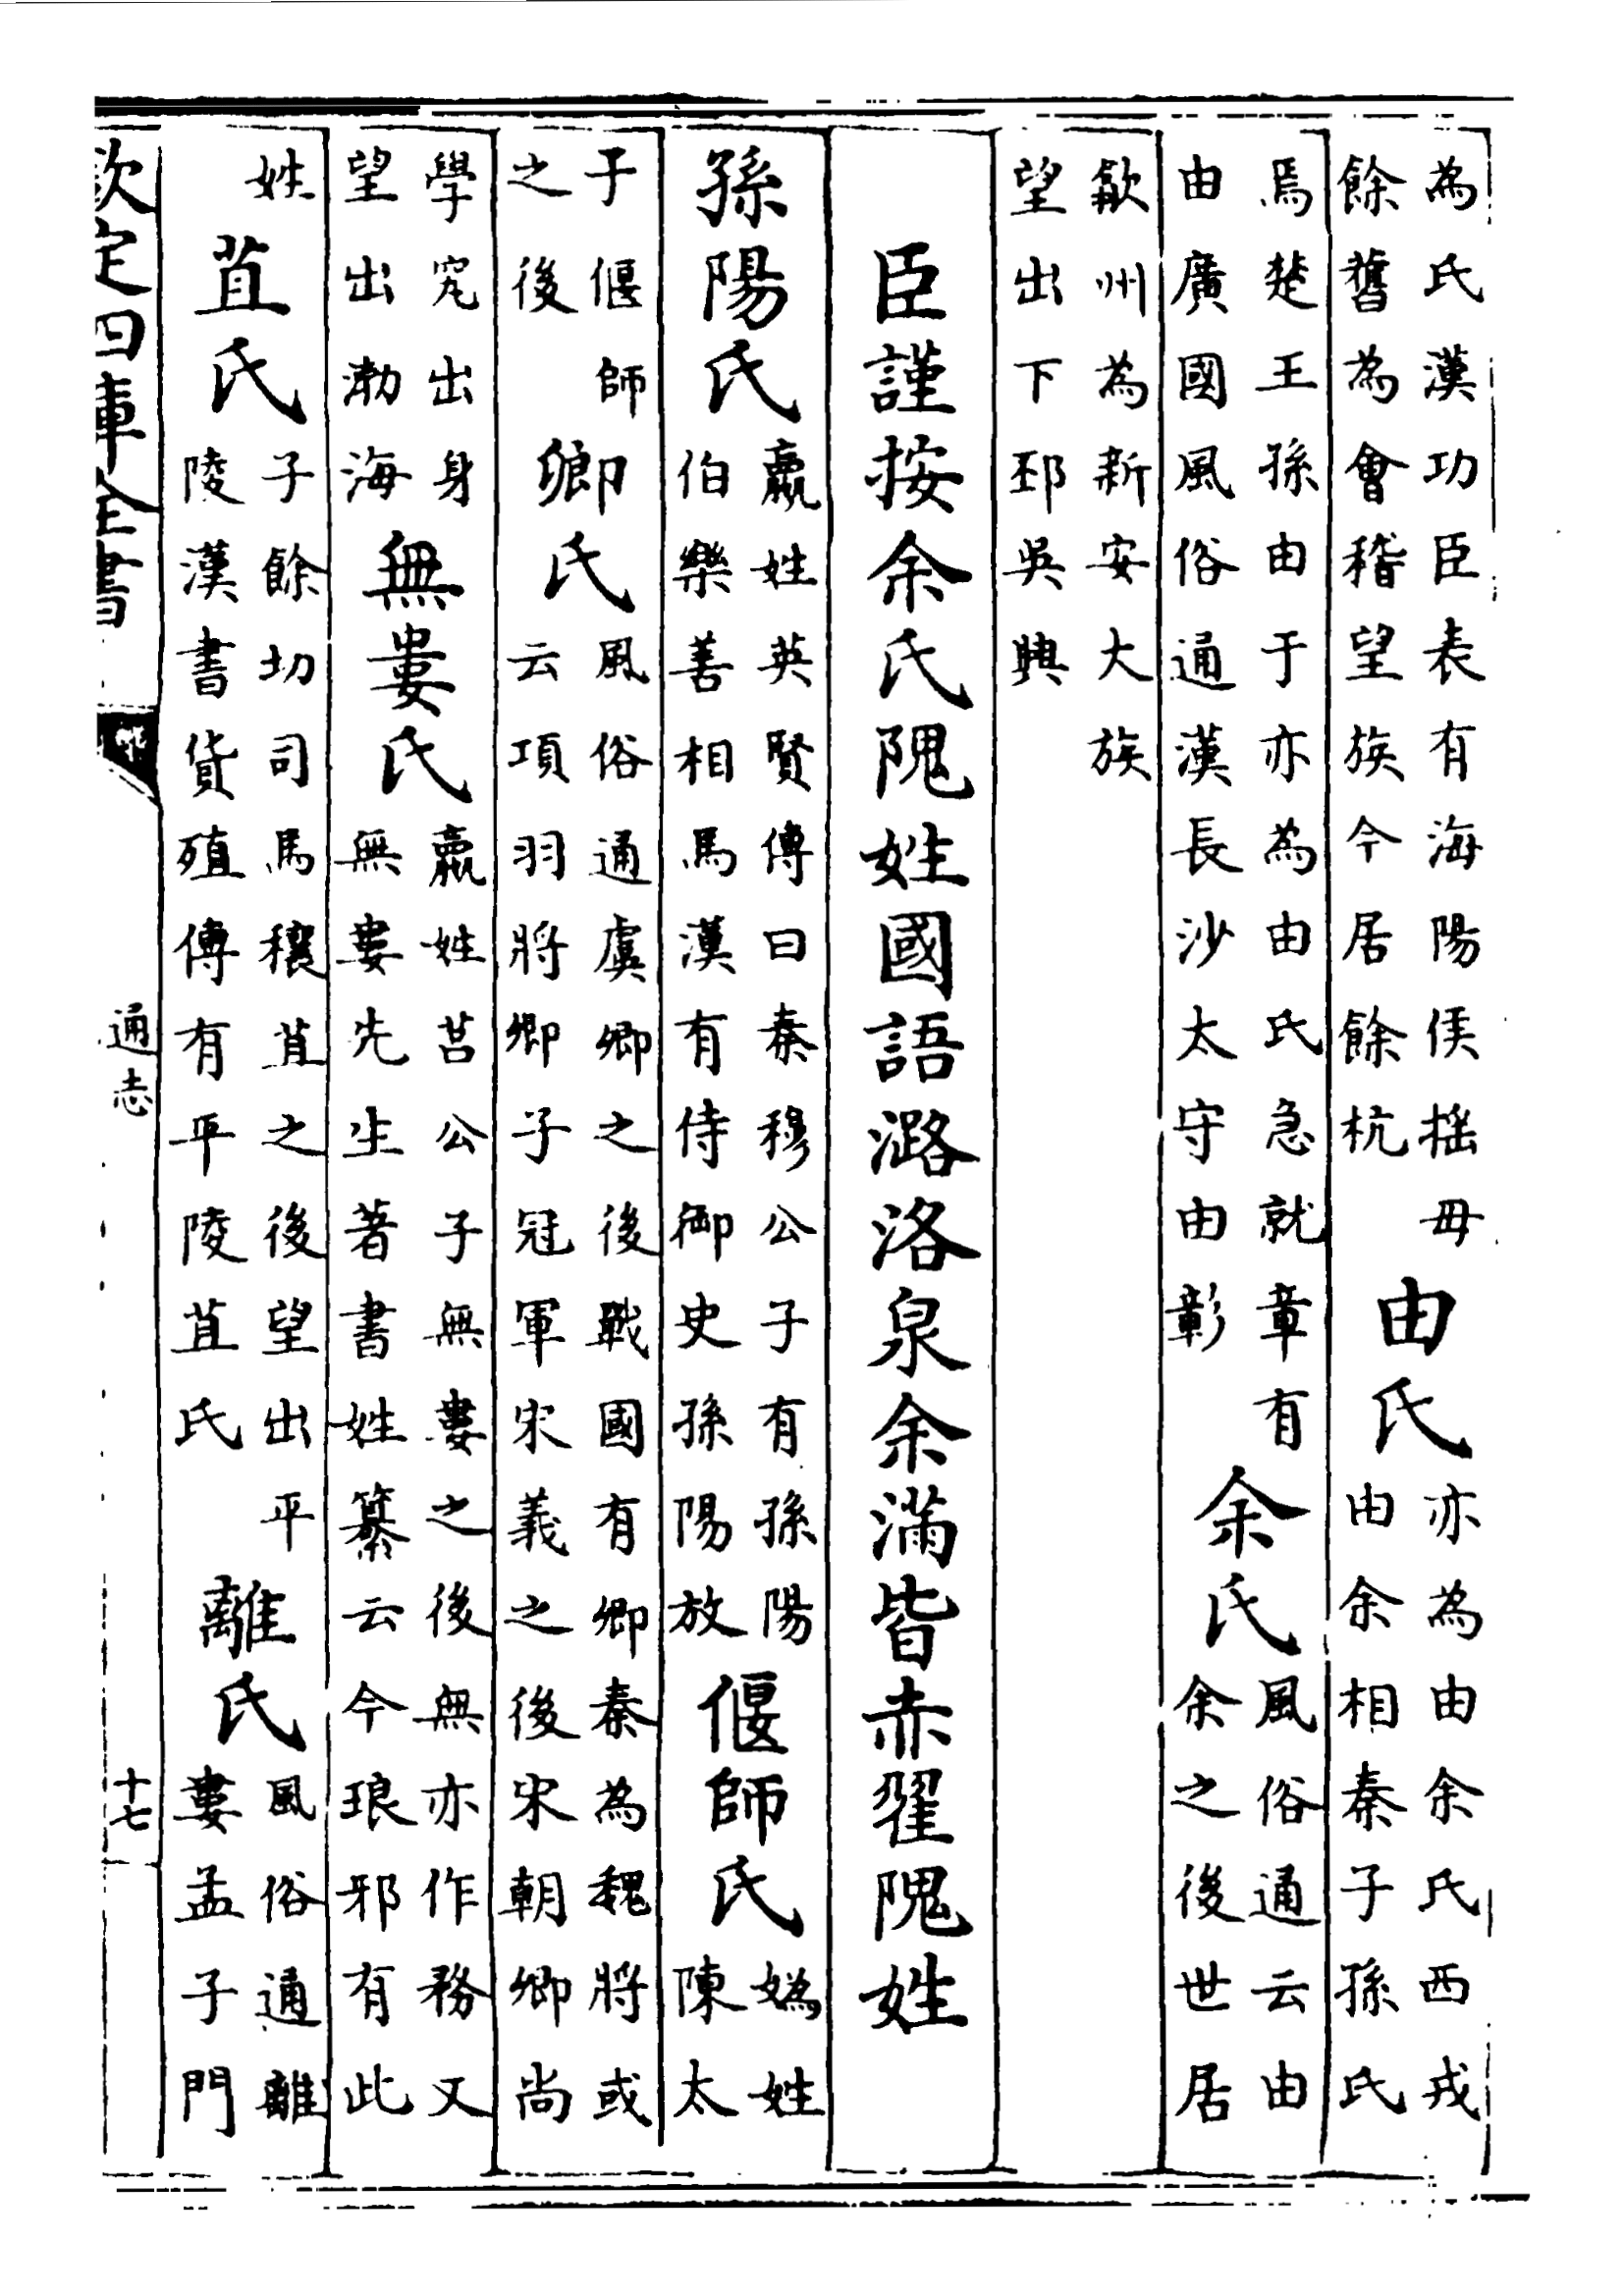 為氏漢功臣表有海陽侯揺毋
餘舊為會稽望族今居餘杭
由氏
亦為由余氏西戎
由余相秦子孫氏
焉楚王孫由于亦為由氏急就章有
由廣國風俗通漢長沙太守由彰
余氏
風俗通云由
余之後世居
歙州為新安大族
望出下邳吳興
臣謹按余氏隗姓國語潞洛泉余滿皆赤翟隗姓
孫陽氏
嬴姓英賢傳曰秦穆公子有孫陽
伯樂善相馬漢有侍御史孫陽放
偃師氏
媯姓
陳太
子偃師
之後
卿氏
風俗通虞卿之後戰國有卿秦為魏將或
云項羽將卿子冠軍宋義之後宋朝卿尚
學究出身
望出渤海
無婁氏
嬴姓莒公子無婁之後無亦作務又
無婁先生著書姓纂云今琅邪有此
姓
苴氏
子餘切司馬穰苴之後望出平
陵漢書貨殖傳有平陵苴氏
離氏
風俗通離
婁孟子門
欽定四庫全書
通志
十七